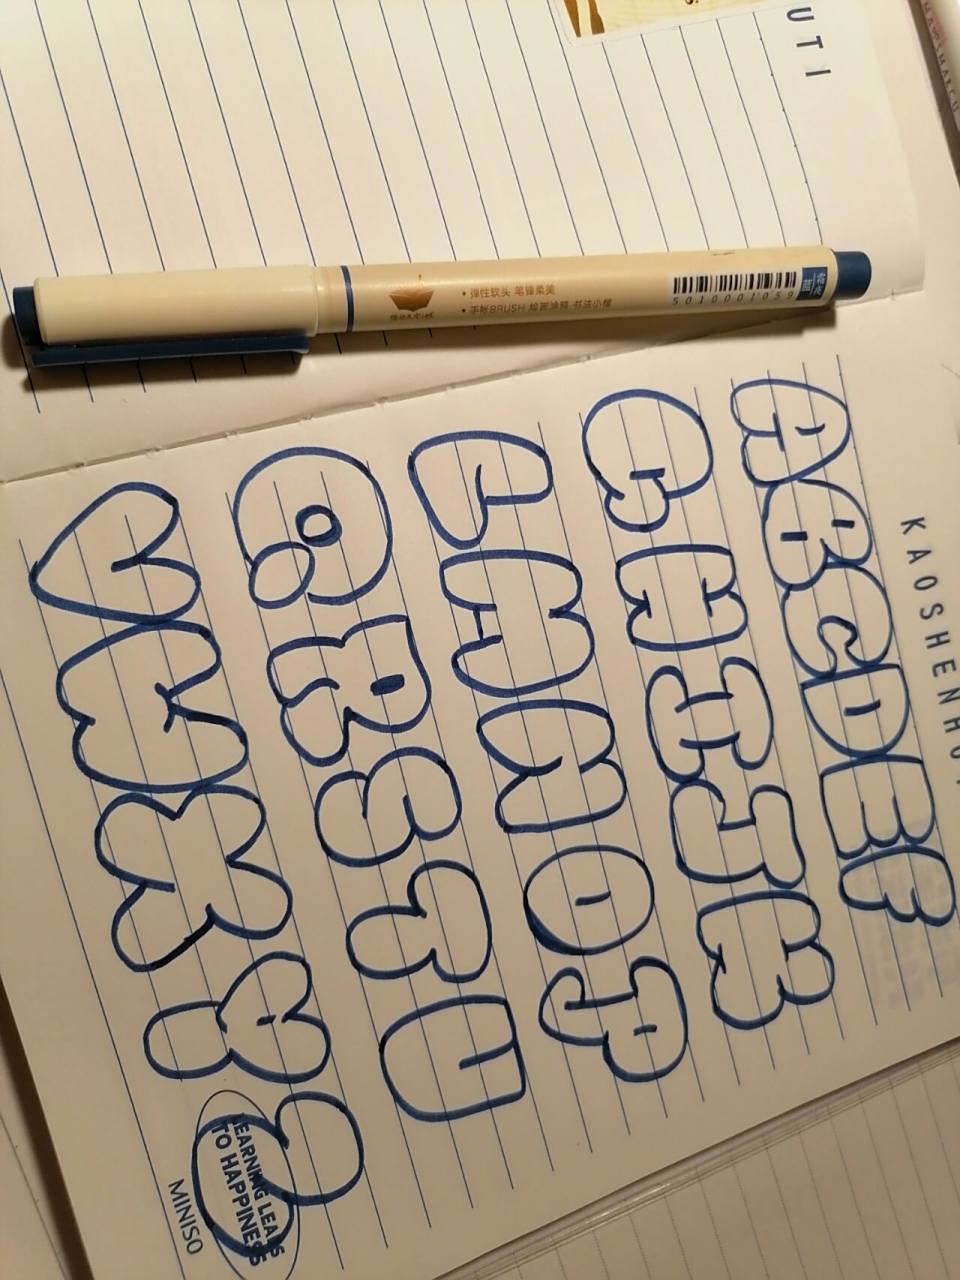 UTI
• 弹性软头 笔锋柔美
• 手帐BRUSH 绘画涂鸦 书法小楷
5010001059
KAOSHENHU
ABCDEF
GHIJK
LMNOP
QRSTU
VWXYZ
LEARNING LEADS
TO HAPPINESS
MINISO